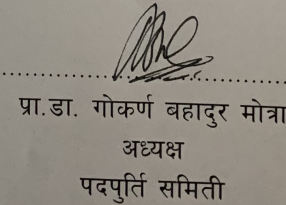 प्रा.डा. गोकर्ण बहादुर मोत्रा
अध्यक्ष
पदपुर्ति समिती